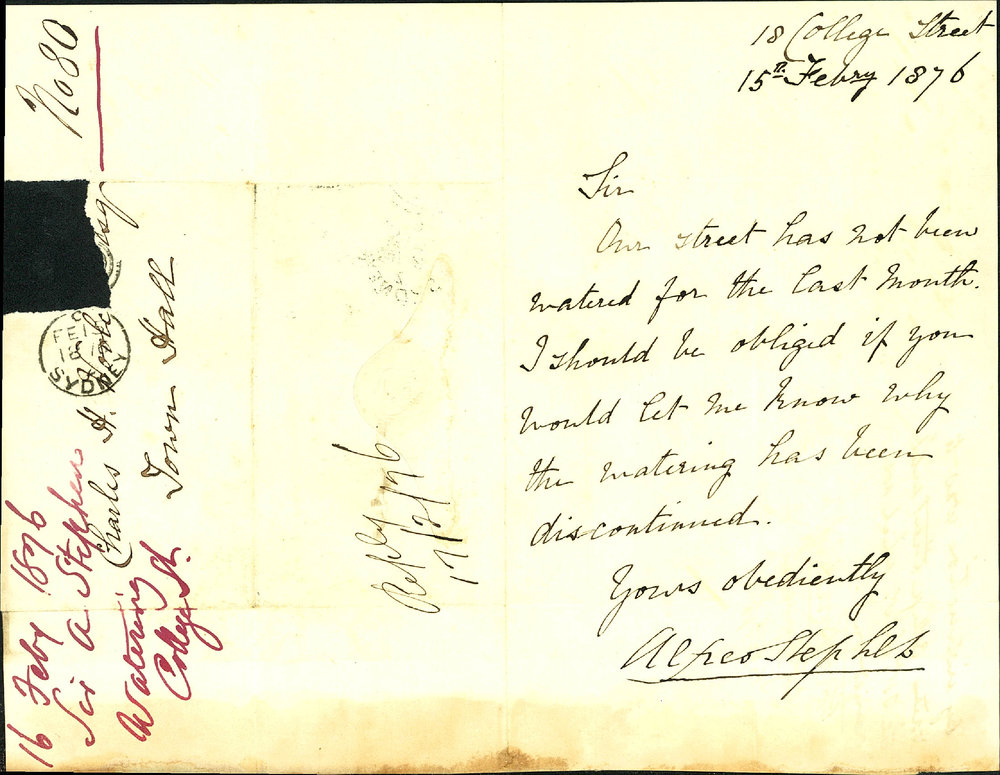 18 College Street
15th Febry 1876
Sir
Our street has not been
watered for the last month.
I should be obliged if you
would let me know why
the watering has been
discontinued.
Yours obediently
Alfred Stephen
No 80
Charles H.
Town Hall
SYDNEY
16 Feby 1876
Sir A Stephen
Watering
College St.
Reply
17/2/76